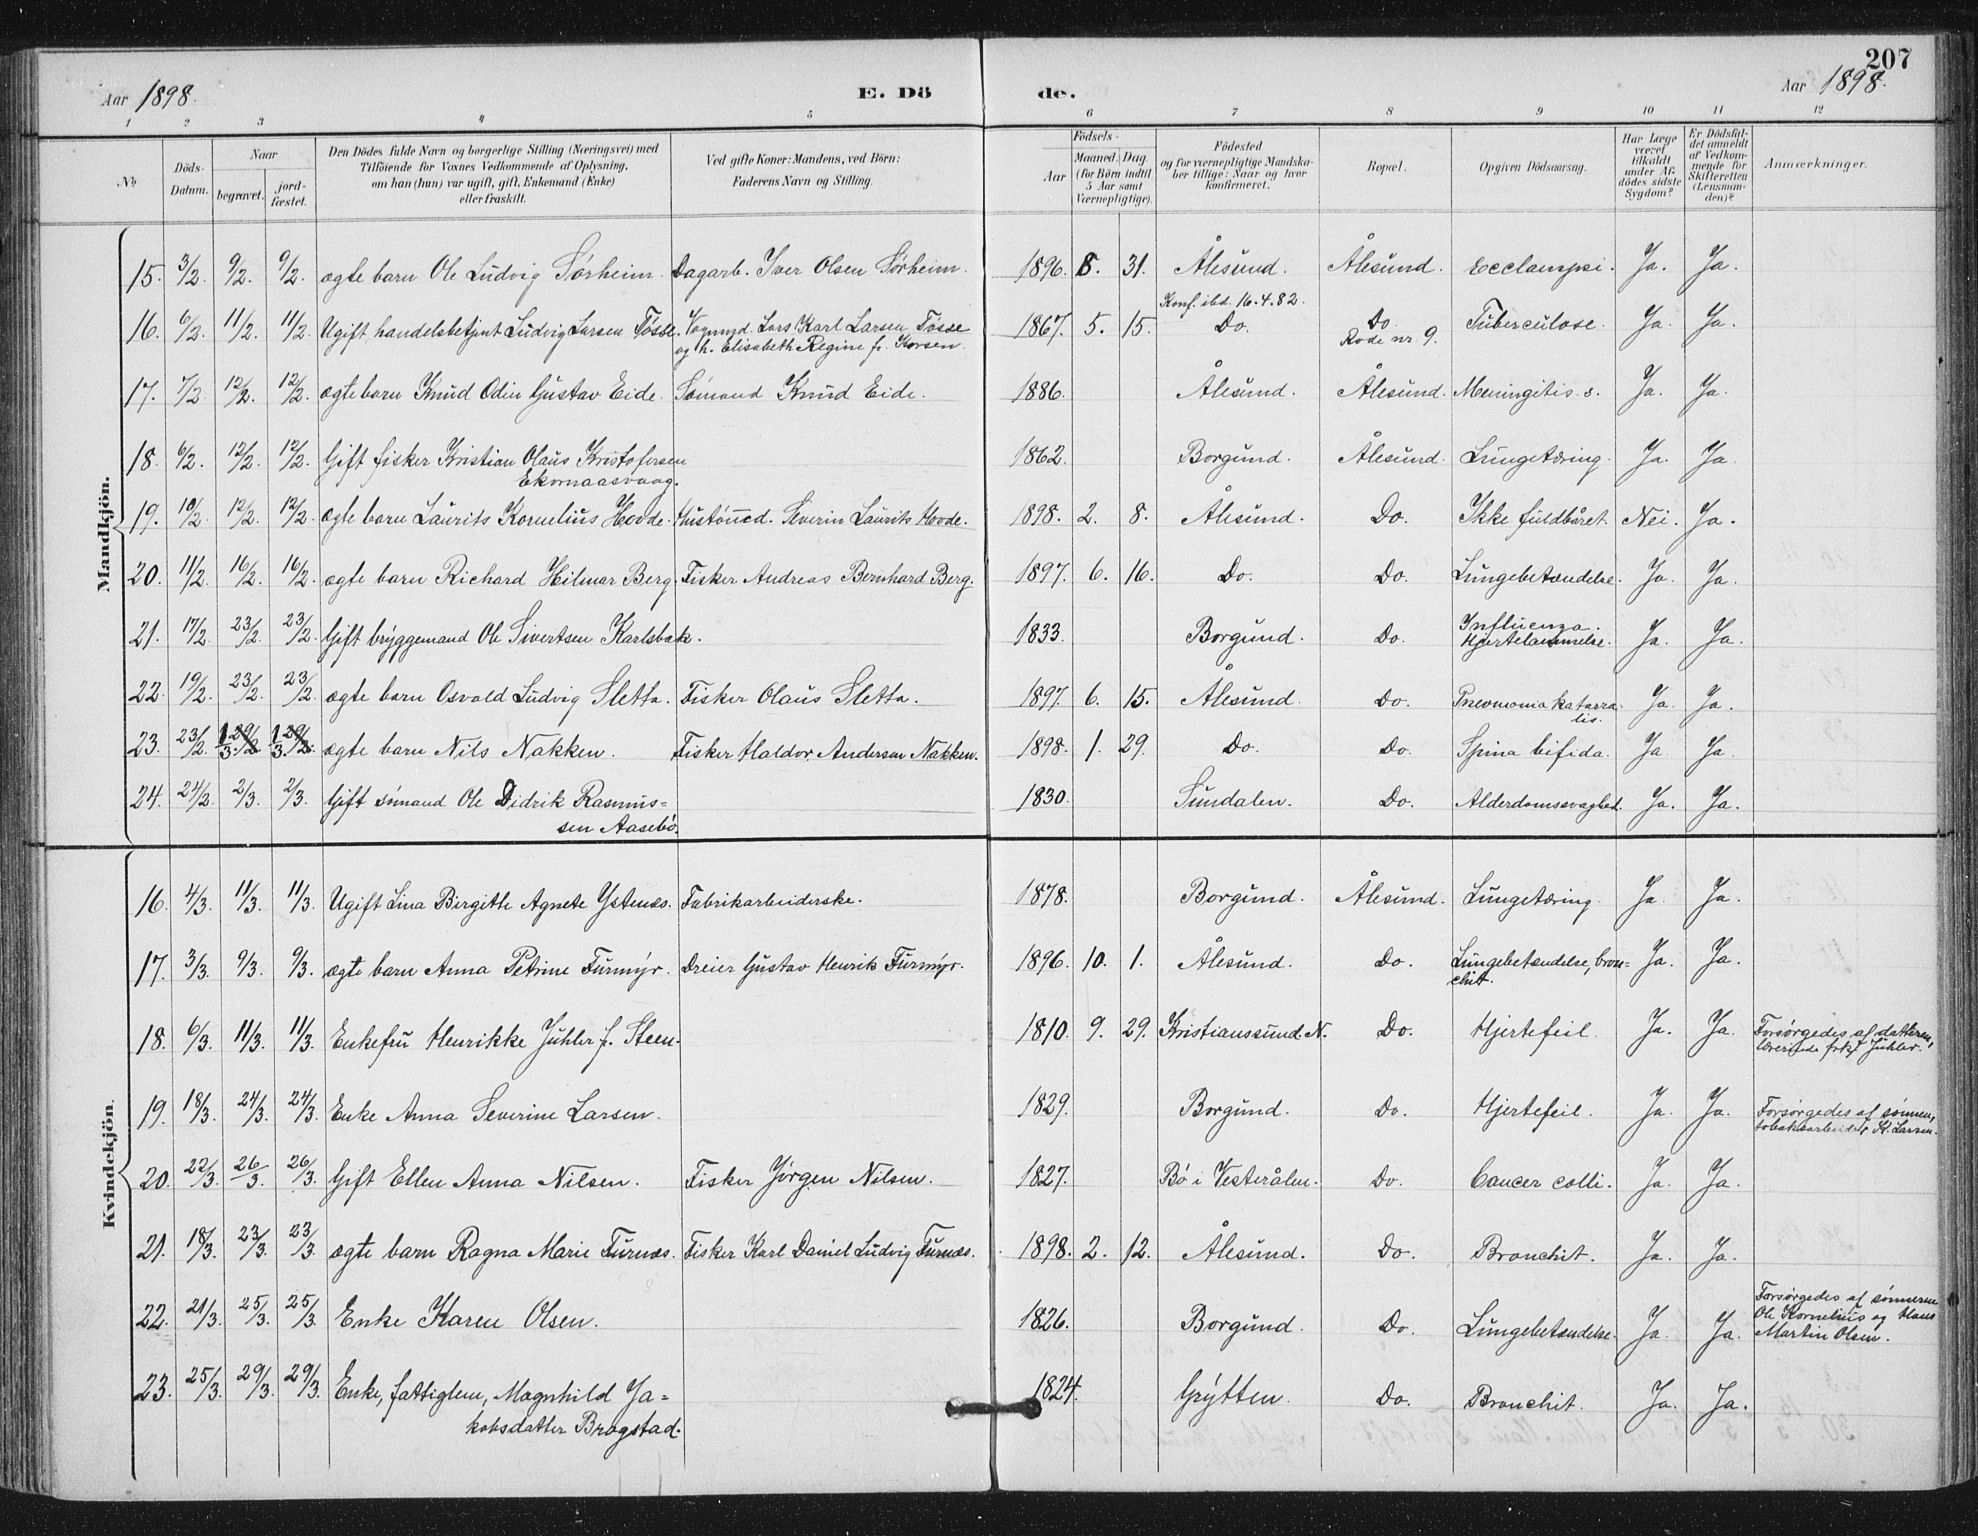 207
Aar 1898. E. Dö de. Aar 1898.
1 2 3 4 5 6 7 8 9 10 11 12
No
Döds-Datum.
Naar
begravet.
jord-fæstet.
Den Dödes fulde Navn og borgerlige Stilling (Næringsvei) med
Tilföiende for Voxnes Vedkommende af Oplysning,
om han (hun) var ugift, gift, Enkemand (Enke)
eller fraskilt.
Ved gifte Koner: Mandens, ved Börn:
Faderens Navn og Stilling.
Födsels-
Aar
Maaned. Dag
(for Börn indtil
5 Aar samt
Værnepligtige).
Födested
og for værnepligtige Mandska-
ber tillige: Naar og hvor
konfirmeret.
Bopæl.
Opgiven Dödsaarsag.
Har Læge
været
tilkaldt
under Af-
dödes sidste
Sygdom?
Er Dödsfal-
det anmeldt
af Vedkom-
mende for
Skifteretten
(Lensman-
den)?
Anmærkninger.
Mandkjön.
15. 3/2. 9/2. 9/2. ægte barn Ole Ludvig Sørheim. Dagarb. Iver Olsen Sørheim. 1896. 8. 31. Ålesund. Ålesund. Ecclampsi. Ja. Ja.
Konf. ibd. 16.4.82.
16. 6/2. 11/2. 11/2. Ugift handelsbetjent Ludvig Larsen Tøsse. Vognmd. Lars Karl Larsen Tøsse 1867. 5. 15. Do. Do. Tuberculose. Ja. Ja.
og h. Elisabeth Regine f. Korsen. Rode nr. 9.
17. 7/2 12/2. 12/2. ægte barn Knud Odin Gustav Eide. Sømand Knud Eide. 1886. Ålesund. Ålesund. Meningitis s. Ja. Ja.
18. 6/2. 12/2. 12/2. Gift fisker Kristian Olaus Kristofersen 1862. Borgund. Ålesund. Lungetæring. Ja. Ja.
Ekornaasvaag.
19. 10/2 12/2. 12/2. ægte barn Laurits Kornelius Hovde. Hustømd. Severin Laurits Hovde. 1898. 2. 8. Ålesund. Do. Ikke fuldbåret. Nei. Ja.
20. 11/2. 16/2. 16/2. ægte barn Richard Hilmar Berg. Fisker Andreas Bernhard Berg. 1897. 6. 16. Do. Do. Lungebetændelse. Ja. Ja.
21. 17/2. 23/2. 23/2. Gift bryggemand Ole Sivertsen Karlsbak. 1833. Borgund. Do. Influenza. Hjertelammelse. Ja. Ja.
22. 19/2. 23/2. 23/2. ægte barn Osvald Ludvig Sletta. Fisker Olaus Sletta. 1897. 6. 15. Ålesund. Do. Pneumonia katarra-
lis. Ja. Ja.
23. 23/2. 1/3. 1/3. ægte barn Nils Nakken. Fisker Haldor Andersen Nakken. 1898. 1. 29. Do. Do. Spina bifida. Ja. Ja.
24. 24/2. 2/3. 2/3. Gift sömand Ole Didrik Rasmus= 1830. Sundalen. Do. Alderdomssvaghed. Ja. Ja.
sen Aasebö.
Kvindekjön.
16. 4/3. 11/3. 11/3. Ugift Lina Birgitte Agnete Ystenæs. Fabrikarbeiderske. 1878. Borgund. Ålesund. Lungetæring. Ja. Ja.
17. 3/3. 9/3. 9/3. ægte barn Anna Petrine Furmyr. Dreier Gustav Henrik Furmyr. 1896. 10. 1. Ålesund. Do. Lungebetændelse, bron=
chit. Ja. Ja.
18. 6/3. 11/3. 11/3. Enkefru Henrikke Juhler f. Steen. 1810. 9. 29. Kristianssund N. Do. Hjertefeil. Ja. Ja. Forsørgedes af datteren,
lærerinde frk. Juhler.
19. 18/3. 24/3. 24/3. Enke Anna Severine Larsen. 1829. Borgund. Do. Hjertefeil. Ja. Ja. Forsørgedes af sønnen,
tobaksarbeider K. Larsen.
20. 22/3. 26/3. 26/3. Gift Ellen Anna Nilsen. Fisker Jørgen Nilsen. 1827. Bø i Vesterålen. Do. Cancer colli. Ja. Ja.
21. 18/3. 23/3. 23/3. ægte barn Ragna Marie Furnæs. Fisker Karl Daniel Ludvig Furnæs. 1898. 2. 12. Ålesund. Do. Bronchit. Ja. Ja.
22. 21/3. 25/3. 25/3. Enke Karen Olsen. 1826. Borgund. Do. Lungebetændelse. Ja. Ja. Forsørgedes af sønnerne
Ole Kornelius og Hans
Martin Olsen.
23. 25/3. 29/3. 29/3. Enke, fattiglem, Magnhild Ja= 1824. Grytten. Do. Bronchit. Ja. Ja.
kobsdatter Brogstad.